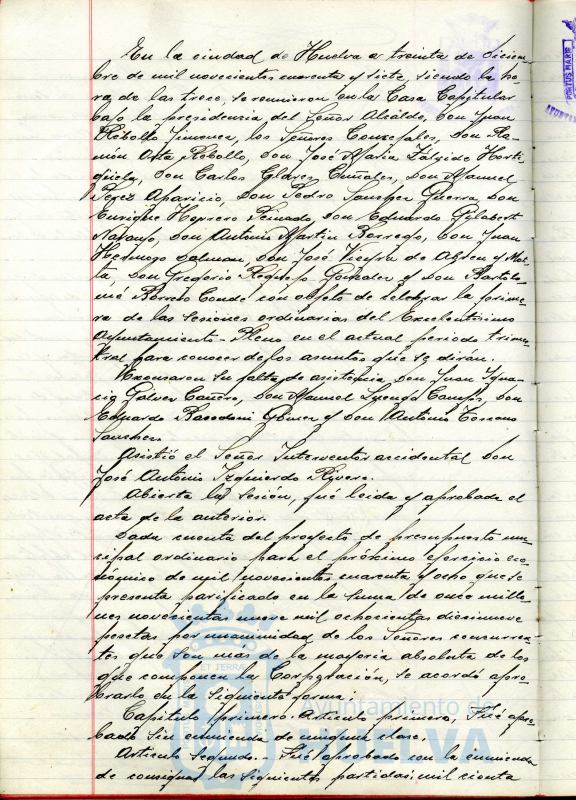 En la ciudad de Huelva a treinta de diciem-
bre de mil novecientos cuarenta y siete, siendo la ho-
ra de las trece, se reunieron en la Casa Capitular
bajo la presidencia del Señor Alcalde, Don Juan
Rebollo Jimenez, los Señores Concejales, Don Ra-
món Orta Rebollo, Don José Maria Horti-
güela, Don Carlos Don Manuel
Perez Aparicio, Don Pedro Sanchez Guerra, Don
Enrique Herrero Peinado, Don Eduardo Gilabert
Naranjo, Don Antonio Martin Borrego, Don Juan
Hermoso Don José de Abreu y
Don Gregorio Gonzalez y Don Bartolo-
mé Borrero Conde con objeto de celebrar la prime-
ra de las sesiones ordinarias del Excelentisimo
Ayuntamiento-Pleno en el actual periodo trimes-
tral para conocer de los asuntos que se dirán.
Excusaron su falta de asistencia, Don Juan Igna-
cio Galvez Don Manuel Don
Eduardo Gómez y Don Antonio Toscano
Sanchez.
Asistió el Señor Interventor accidental Don
José Antonio Izquierdo Rivero.
Abierta la sesión, fué leida y aprobada el
acta de la anterior.
Dada cuenta del proyecto de presupuesto mu-
cipal ordinario para el próximo ejercicio eco-
nómico de mil novecientos cuarenta y ocho que se
presenta parificado en la suma de once millo-
nes novecientas nueve mil ochocientas diecinueve
pesetas por unanimidad de los Señores concurren-
tes que son más de la mayoria absoluta de los
que componen la Corporación, se acordó apro-
barlo en la siguiente forma:
Capitulo primero. Articulo primero, Fué apro-
bado sin enmienda de ninguna clase.
Articulo segundo.- Fué aprobado con la enmienda
de consignar las siguientes partidas: mil cienta
ET TERRAE
Ayuntamiento de
HUELVA
PORTUS MARIS